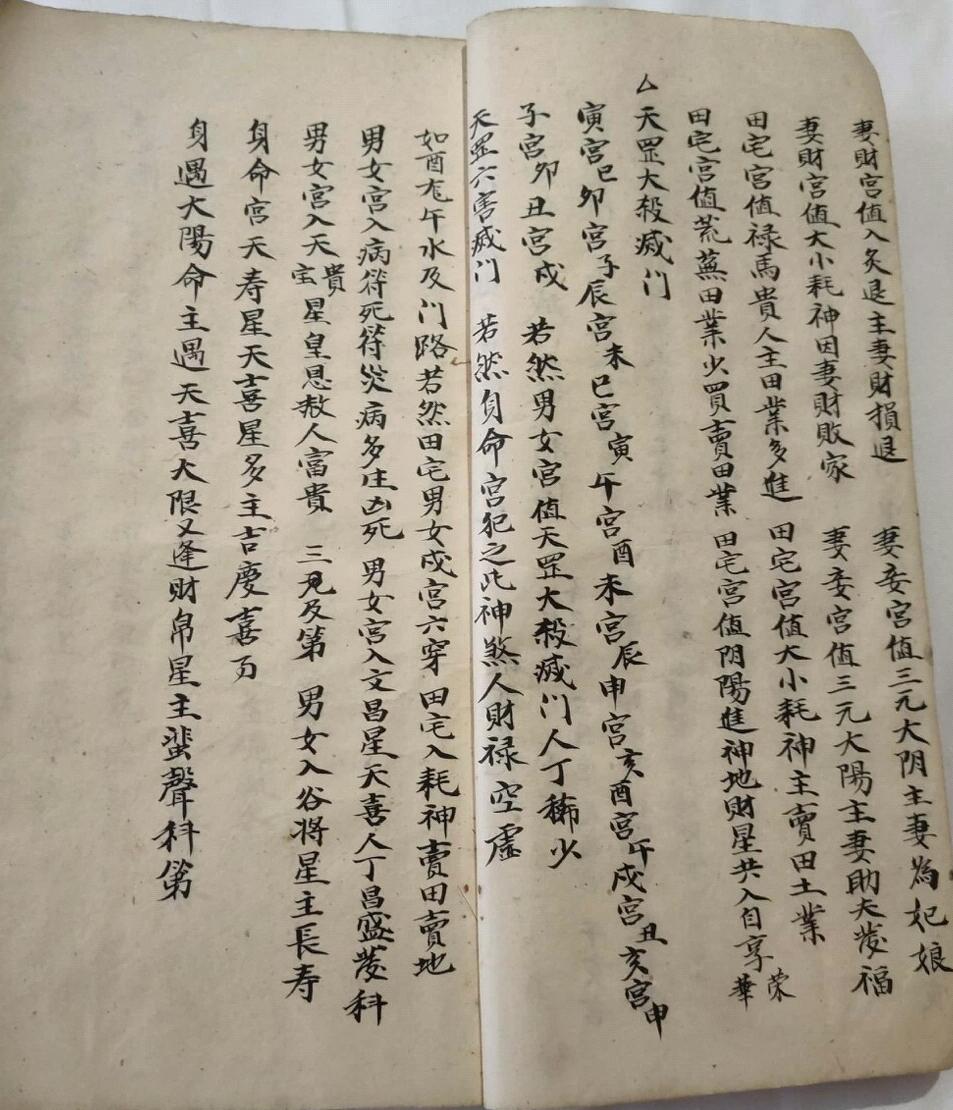 妻財宮值入炙退主妻財損退　妻妾宮值三元大阴主妻為妃娘
妻財宮值大小耗神因妻財敗家　妻妾宮值三元大陽主妻助夫發福
田宅宮值禄馬貴人主田業多進　田宅宮值大小耗神主賣田土業
田宅宮值荒蕪田業少買賣田業　田宅宮值阴陽進神地財星共入自享荣華
△天罡大殺滅门
寅宮巳卯宮子辰宮未巳宮寅午宮酉未宮辰申宮亥酉宮午戍宮丑亥宮申
子宮卯丑宮戍　若然男女宮值天罡大殺滅门人丁稀少
天罡六害滅门　若然身命宮犯之此神煞人財禄空虛
如酉午水及门路若然田宅男女戍宮六穿田宅入耗神賣田賣地
男女宮入病符死符災病多庄凶死　男女宮入文昌星天喜人丁昌盛發科
男女宮入天貴宝星皇恩赦人富貴　三元及第　男女入谷将星主長寿
身命宮天寿星天喜星多主吉慶喜
身遇大陽命主遇天喜大限又逢財帛星主蜚聲科第